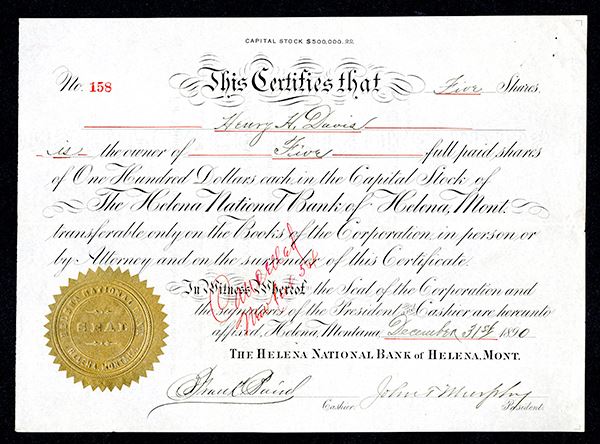 CAPITAL STOCK $500,000.00.
No. 158 This Certifies that Five Shares.
Henry H. Davis
is the owner of Five full paid shares
of One Hundred Dollars each, in the Capital Stock of
The Helena National Bank of Helena, Mont.
transferable only on the Books of the Corporation, in person or
by Attorney and on the surrender of this Certificate.
Cancelled
In Witness Whereof the Seal of the Corporation and
the signatures of the President and Cashier are hereunto
affixed, Helena, Montana, December 31st 1890
THE HELENA NATIONAL BANK OF HELENA, MONT.
SEAL
HELENA, MONTANA
John T Murphy
Cashier. President.